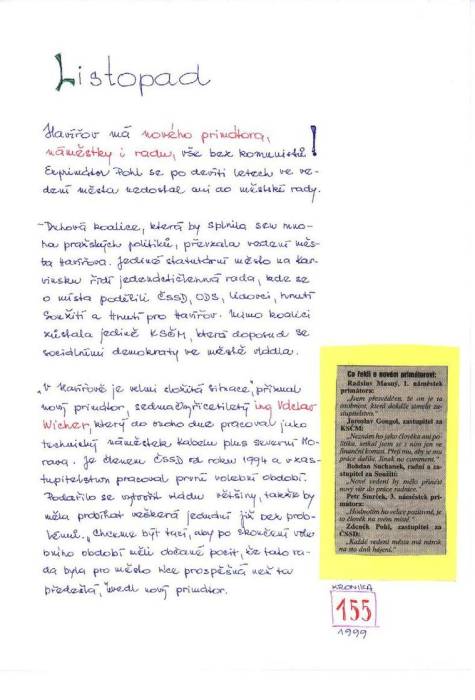 Listopad
Havířov má nového primátora,
náměstky i radu, vše bez komunistů!
Exprimátor Pohl se po devíti letech ve ve-
dení města nedostal ani do městské rady.
"Duhová koalice, která by splnila sen mno-
ha pražských politiků, převzala vedení měs-
ta Havířova. Jediné statutární město na Kar-
vinsku řídí jedenáctičlenná rada, kde se
o místa podělili ČSSD, ODS, lidovci, hnutí
Soužití a Hnutí pro Havířov. Mimo koalici
zůstala jedině KSČM, která doposud se
sociálními demokraty ve městě vládla.
"V Havířově je velmi složitá situace, přiznal
nový primátor, sedmačtyřicetiletý ing Václav
Wicher, který do onoho dne pracoval jako
technický náměstek Kabelu plus Severní Mo-
rava. Je členem ČSSD od roku 1994 a v zas-
tupitelstvu pracoval první volební období.
Podařilo se vytvořit vládu většiny, takže by
měla probíhat veškerá jednání již bez prob-
lémů. "Chceme být tací, aby po skončení vole-
bního období měli občané pocit, že tato ra-
da byla pro město více prospěšná než ta
předešlá," uvedl nový primátor.
Co řekli o novém primátorovi:
Radslav Masný, 1. náměstek
primátora:
"Jsem přesvědčen, že on je ta
osobnost, která dokáže
Jaroslav Gongol, zastupitel za
KSČM:
"Neznám ho jako člověka ani po-
litika, setkal jsem se s ním jen ve
finanční komisi. Přeji mu, aby se mu
práce dařila. Jinak no comment."
Bohdan Suchanek, radní a za-
stupitel za Soužití:
"Nové vedení by mělo přinést
nový vítr do práce radnice."
Petr Smrček, 3. náměstek pri-
mátora:
"Hodnotím ho velice pozitivně, je
to člověk na svém místě."
Zdeněk Pohl, zastupitel za
ČSSD:
"Každé vedení města má nárok
na sto dnů hájení."
KRONIKA
155
1999